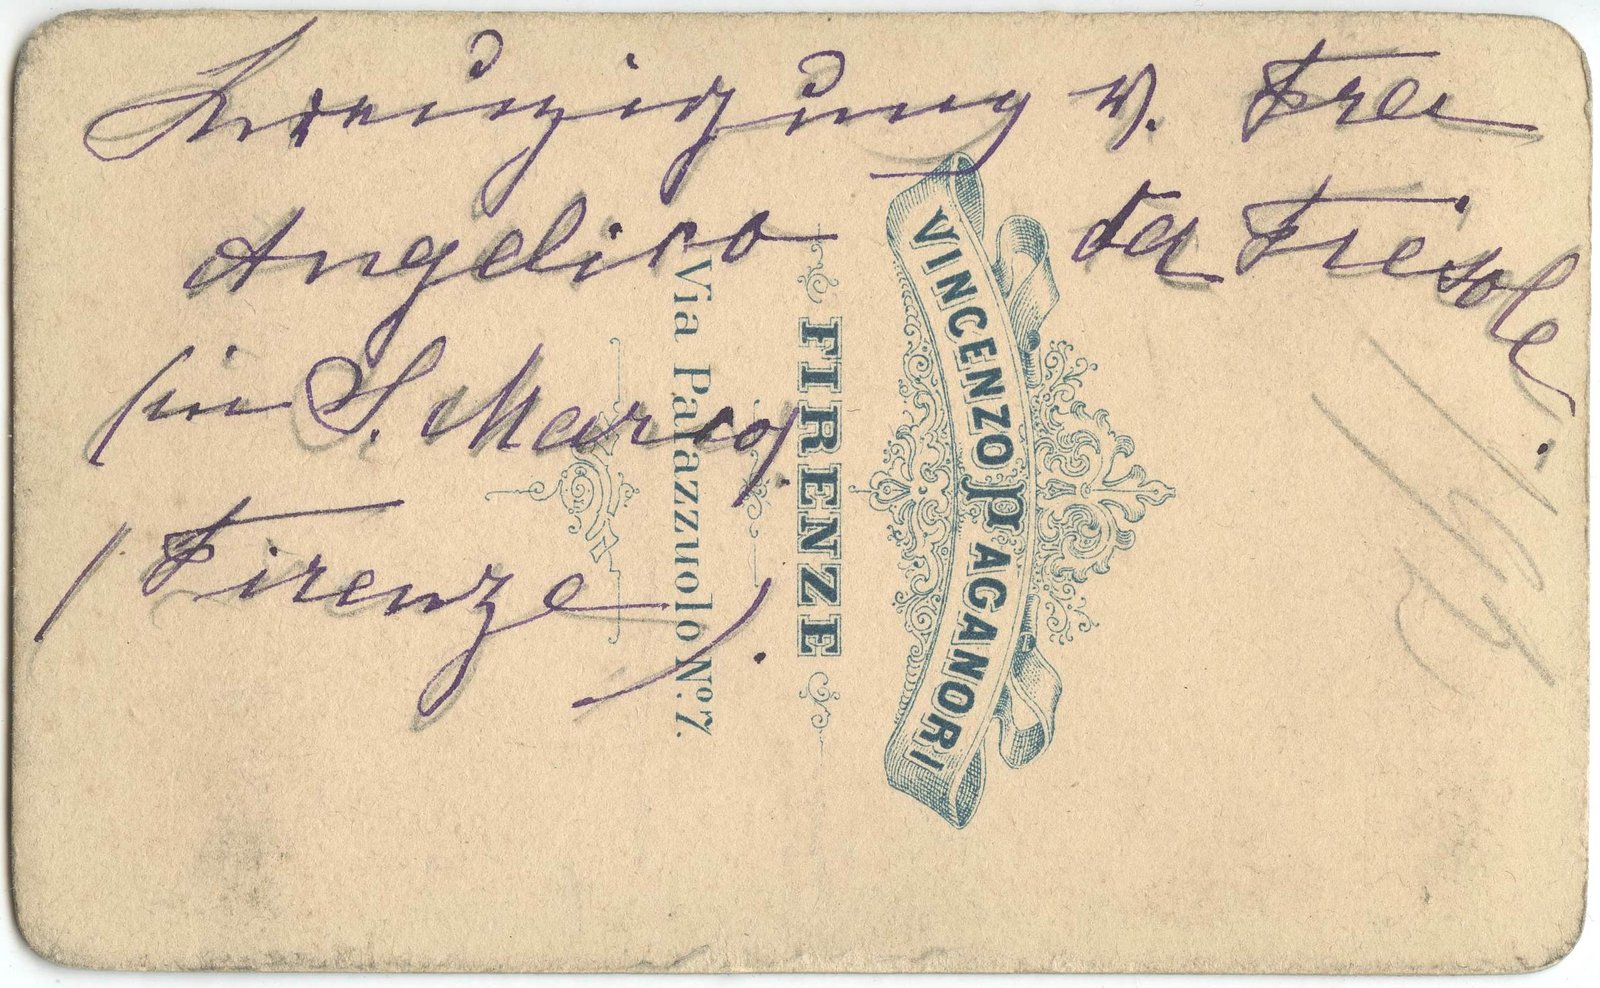 Kreuzigung v. Fra
Angelico da Fiesole
in S. Marco.
(Firenze).
VINCENZO PAGANORI
FIRENZE
Via Palazzuolo Nº 7.